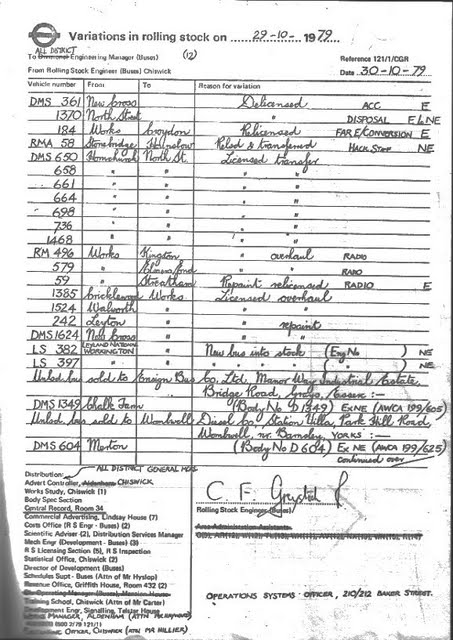 Variations in rolling stock on 29-10- 1979
ALL DISTRICT
To Divisional Engineering Manager (Buses) (12) Reference 121/1/CGR
From Rolling Stock Engineer (Buses) Chiswick Date 30-10-79
Vehicle number From To Reason for variation
DMS 361 New Cross Delicensed ACC E
1370 North Street " DISPOSAL E LNE
184 Works Croydon Relicensed FARE/CONVERSION E
RMA 58 Stonebridge Hounslow Relsd & transferred HACK STOP NE
DMS 650 Hornchurch North St. Licensed transfer
658 " " "
661 " " "
664 " " "
698 " " "
736 " " "
1468 " " "
RM 496 Works Kingston " overhaul RADIO
579 " " " RADIO
59 " Streatham Repaint relicensed RADIO E
1385 Cricklewood Works Licensed overhaul
1524 Walworth " "
242 Leyton " " repaint
DMS 1624 New Cross " "
LS 382 LEYLAND NATIONAL WORKINGTON New bus into stock (Eng No ) NE
LS 397 " " " " " ( " " ) NE
Unlsd. bus sold to Ensign Bus Co. Ltd, Manor Way Industrial Estate,
Bridge Road, Grays, Essex :-
DMS 1349 Chalk Farm (Body No D 1349) Ex NE (AWCA 199/605)
Unlsd. bus sold to Wombwell Diesel Co., Station Villa, Park Hill Road,
Wombwell, nr. Barnsley, YORKS :-
DMS 604 Merton (Body No D 604) Ex NE (AWCA 199/625)
continued over
Distribution: ALL DISTRICT GENERAL MGRS
Advert Controller, Aldenham CHISWICK
Works Study, Chiswick (1)
Body Spec Section
Central Record, Room 34
Commercial Advertising, Lindsay House (7)
Costs Office (R S Engr - Buses) (2)
Scientific Adviser (2), Distribution Services Manager
Mech Engr (Development - Buses) (3)
R S Licensing Section (5), R S Inspection
Statistical Office, Chiswick (2)
Director of Development (Buses)
Schedules Supt - Buses (Attn of Mr Hyslop)
Revenue Office, Griffith House, Room 432 (2)
Ch Operating Manager (Buses), Mansion House
Training School, Chiswick (Attn of Mr Carter)
Development Engr, Signalling, Telstar House
Stores, ALDENHAM (ATTN
Accounting Officer, CHISWICK (ATTN MR HILLIER)
C F
Rolling Stock Engineer (Buses)
Area Administration Assistants
OPERATIONS SYSTEMS OFFICER, 210/212 BAKER STREET.